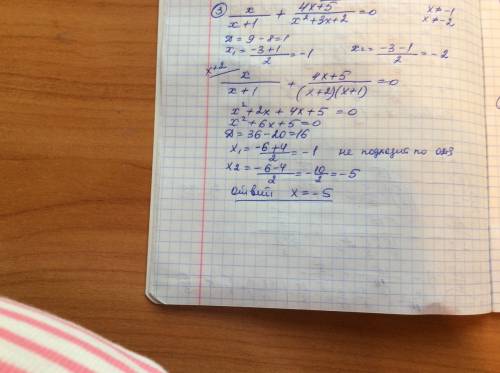 ③ x/(x+1) + (4x+5)/(x²+3x+2) = 0 x≠-1
x≠-2
D = 9-8=1
x₁ = (-3+1)/2 = -1 x₂ = (-3-1)/2 = -2
x+2
x/(x+1) + (4x+5)/((x+2)(x+1)) = 0
x²+2x+4x+5 = 0
x²+6x+5=0
D = 36-20=16
x₁ = (-6+4)/2 = -1 не подходит по ОДЗ
x2 = (-6-4)/2 = -10/2 = -5
Ответ x = -5